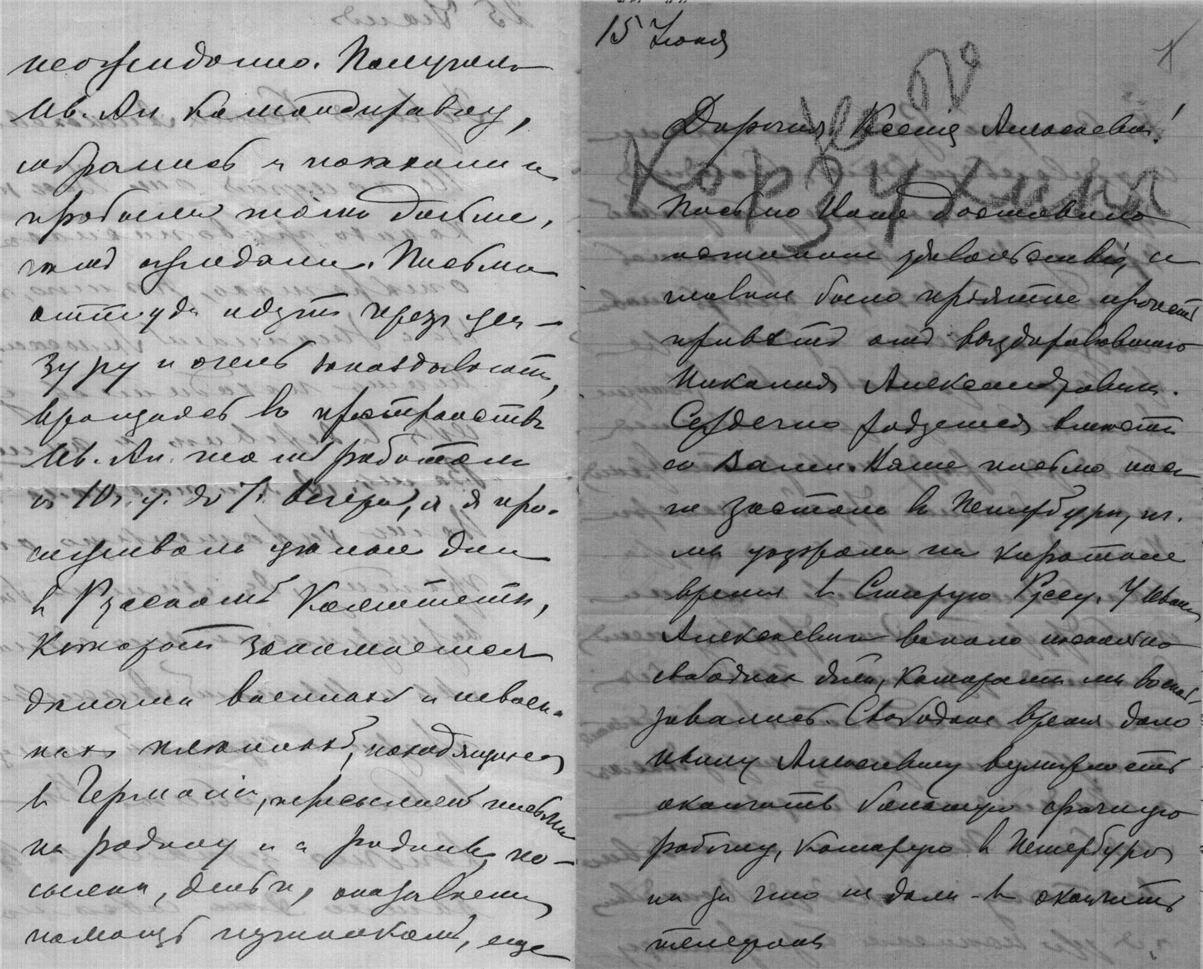 неожиданно. Получилъ
Ив. Ал. командировку,
собрались и поехали и
пробыли тамъ дольше,
чемъ ожидали. Письма
оттуда идутъ чрезъ цен-
зуру и очень запаздываютъ,
Ив. Ал. тамъ работалъ
съ 10 ч. у. до 7 ч. вечера, а я про-
сиживала целые дни
въ Русскомъ Комитете,
который занимается
делами военныхъ и невоен-
ныхъ пленныхъ, находящихся
въ Германіи, пересылаетъ письма
на родину и съ родины, по-
сылки, деньги, оказываетъ
помощь еще
15 Іюня
Дорогая Ксенія Алексеевна!
Корзухина
Письмо Ваше доставило
удовольствіе, и
главное было пріятно прочесть
приветъ отъ выздоровевшаго
Николая Александровича.
Сердечно радуемся вместе
съ Вами. Ваше письмо насъ
не застало въ Петербурге, т.к.
мы удрали на короткое
время въ Старую Руссу. У Ивана
Алексеевича выпало несколько
свободныхъ дней, которыми мы воспол
зовались. Свободное время дало
Ивану Алексеевичу возможность
окончить большую срочную
работу, которую въ Петербурге
ни за что не дали-бъ окончить
телефоны